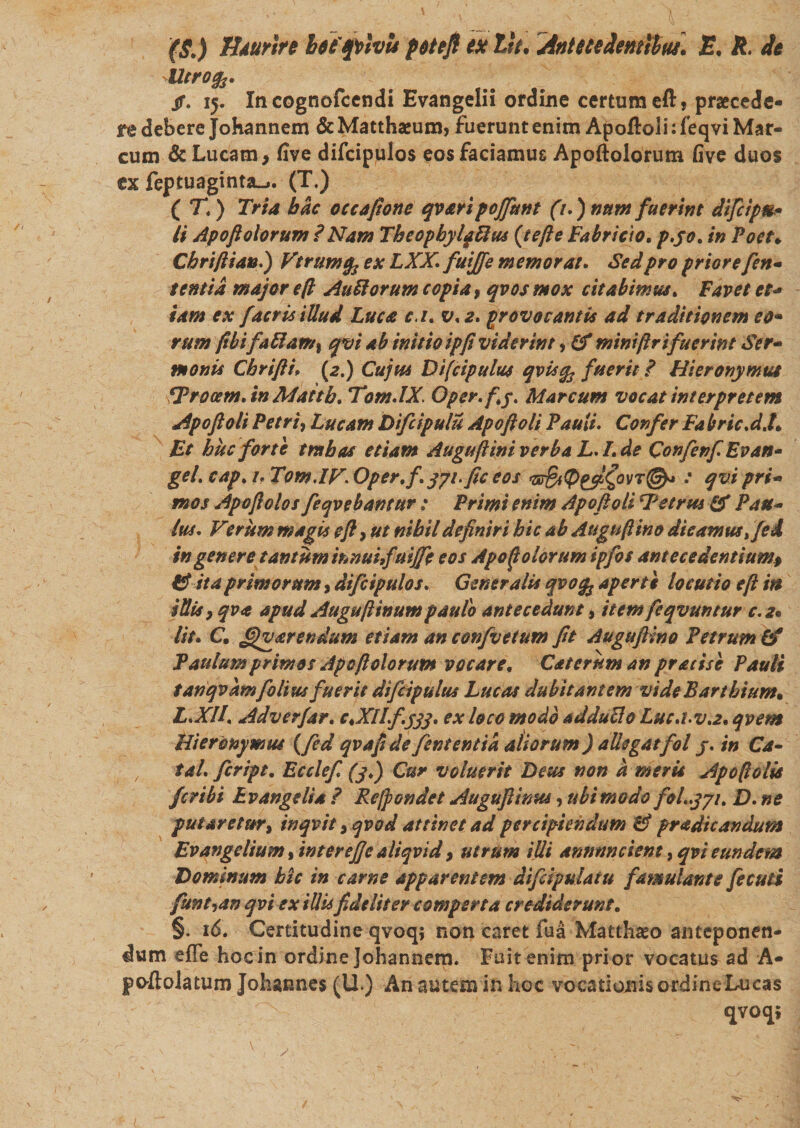 (S.) Haurire hoc qvivis potest ex Lit. Antecedentibus. E. R. de
Utroq;.
§. 15. In cognoscendi Evangelii ordine certum est, præcede-
re debere Johannem & Matthæum, fuerunt enim Apostoli: seqvi Mar-
cum & Lucam, sive discipulos eos faciamus Apostolorum sive duos
ex septuaginta. (T.)
( T. ) Tria hâc occasione qværi possunt (1.) num fuerint discipu-
li Apostolorum ? Nam Theophylactus (teste Fabricio. p.50. in Poet.
Christian.) Utrumq; ex LXX. fuisse memorat. Sed pro priore sen-
tentiâ major est Auctorum copia, qvos mox citabimus. Favet et-
iam ex sacris illud Lucæ c.1. v. 2. provocantis ad traditionem eo-
rum sibi factam, qvi ab initio ipsi viderint, & ministri fuerint Ser-
monis Christi. (2.) Cujus Discipulus qvisq; fuerit ? Hieronymus
Proœm. in Matth. Tom.IX. Oper. f.5. Marcum vocat interpretem
Apostoli Petri, Lucam Discipulū Apostoli Pauli. Confer Fabric.d.l.
Et huc forte trahas etiam Augustini verba L. I. de Consens. Evan-
gel. cap. 1. Tom.IV. Oper. f. 371. sic eos : qvi pri-
mos Apostolos seqvebantur : Primi enim Apostoli Petrus & Pau-
lus. Verùm magis est, ut nihil definiri hic ab Augustino dicamus, sed
in genere tantùm innui, fuisse eos Apostolorum ipsos antecedentium,
& ita primorum, discipulos. Generalis qvoq; apertè locutio est in
illis, qvæ apud Augustinum paulò antecedunt, item seqvuntur c. 2.
lit. C. Qværendum etiam an consvetum sit Augustino Petrum &
Paulum primos Apostolorum vocare. Cæterùm an præcisè Pauli
tanqvàm solius fuerit discipulus Lucas dubitantem vide Barthium.
L.XII. Adversar. c.XII.f.533. ex loco modò adducto Luc.1.v.2. qvem
Hieronymus (sed qvasi de sententiâ aliorum) allegat fol 5. in Ca-
tal. script. Eccles. (3.) Cur voluerit Deus non à meris Apostolis
scribi Evangelia ? Respondet Augustinus, ubi modo fol.371. D. ne
putaretur, inqvit, qvod attinet ad percipiendum & prædicandum
Evangelium, interesse aliqvid, utrum illi annnncient, qvi eundem
Dominum hîc in carne apparentem discipulatu famulante secuti
sunt, an qvi ex illis fideliter comperta crediderunt.
§. 16. Certitudine qvoq; non caret suâ Matthæo anteponen-
dum esse hoc in ordine Johannem. Fuit enim prior vocatus ad A-
postolatum Johannes (U.) An autem in hoc vocationis ordine Lucas
qvoq;